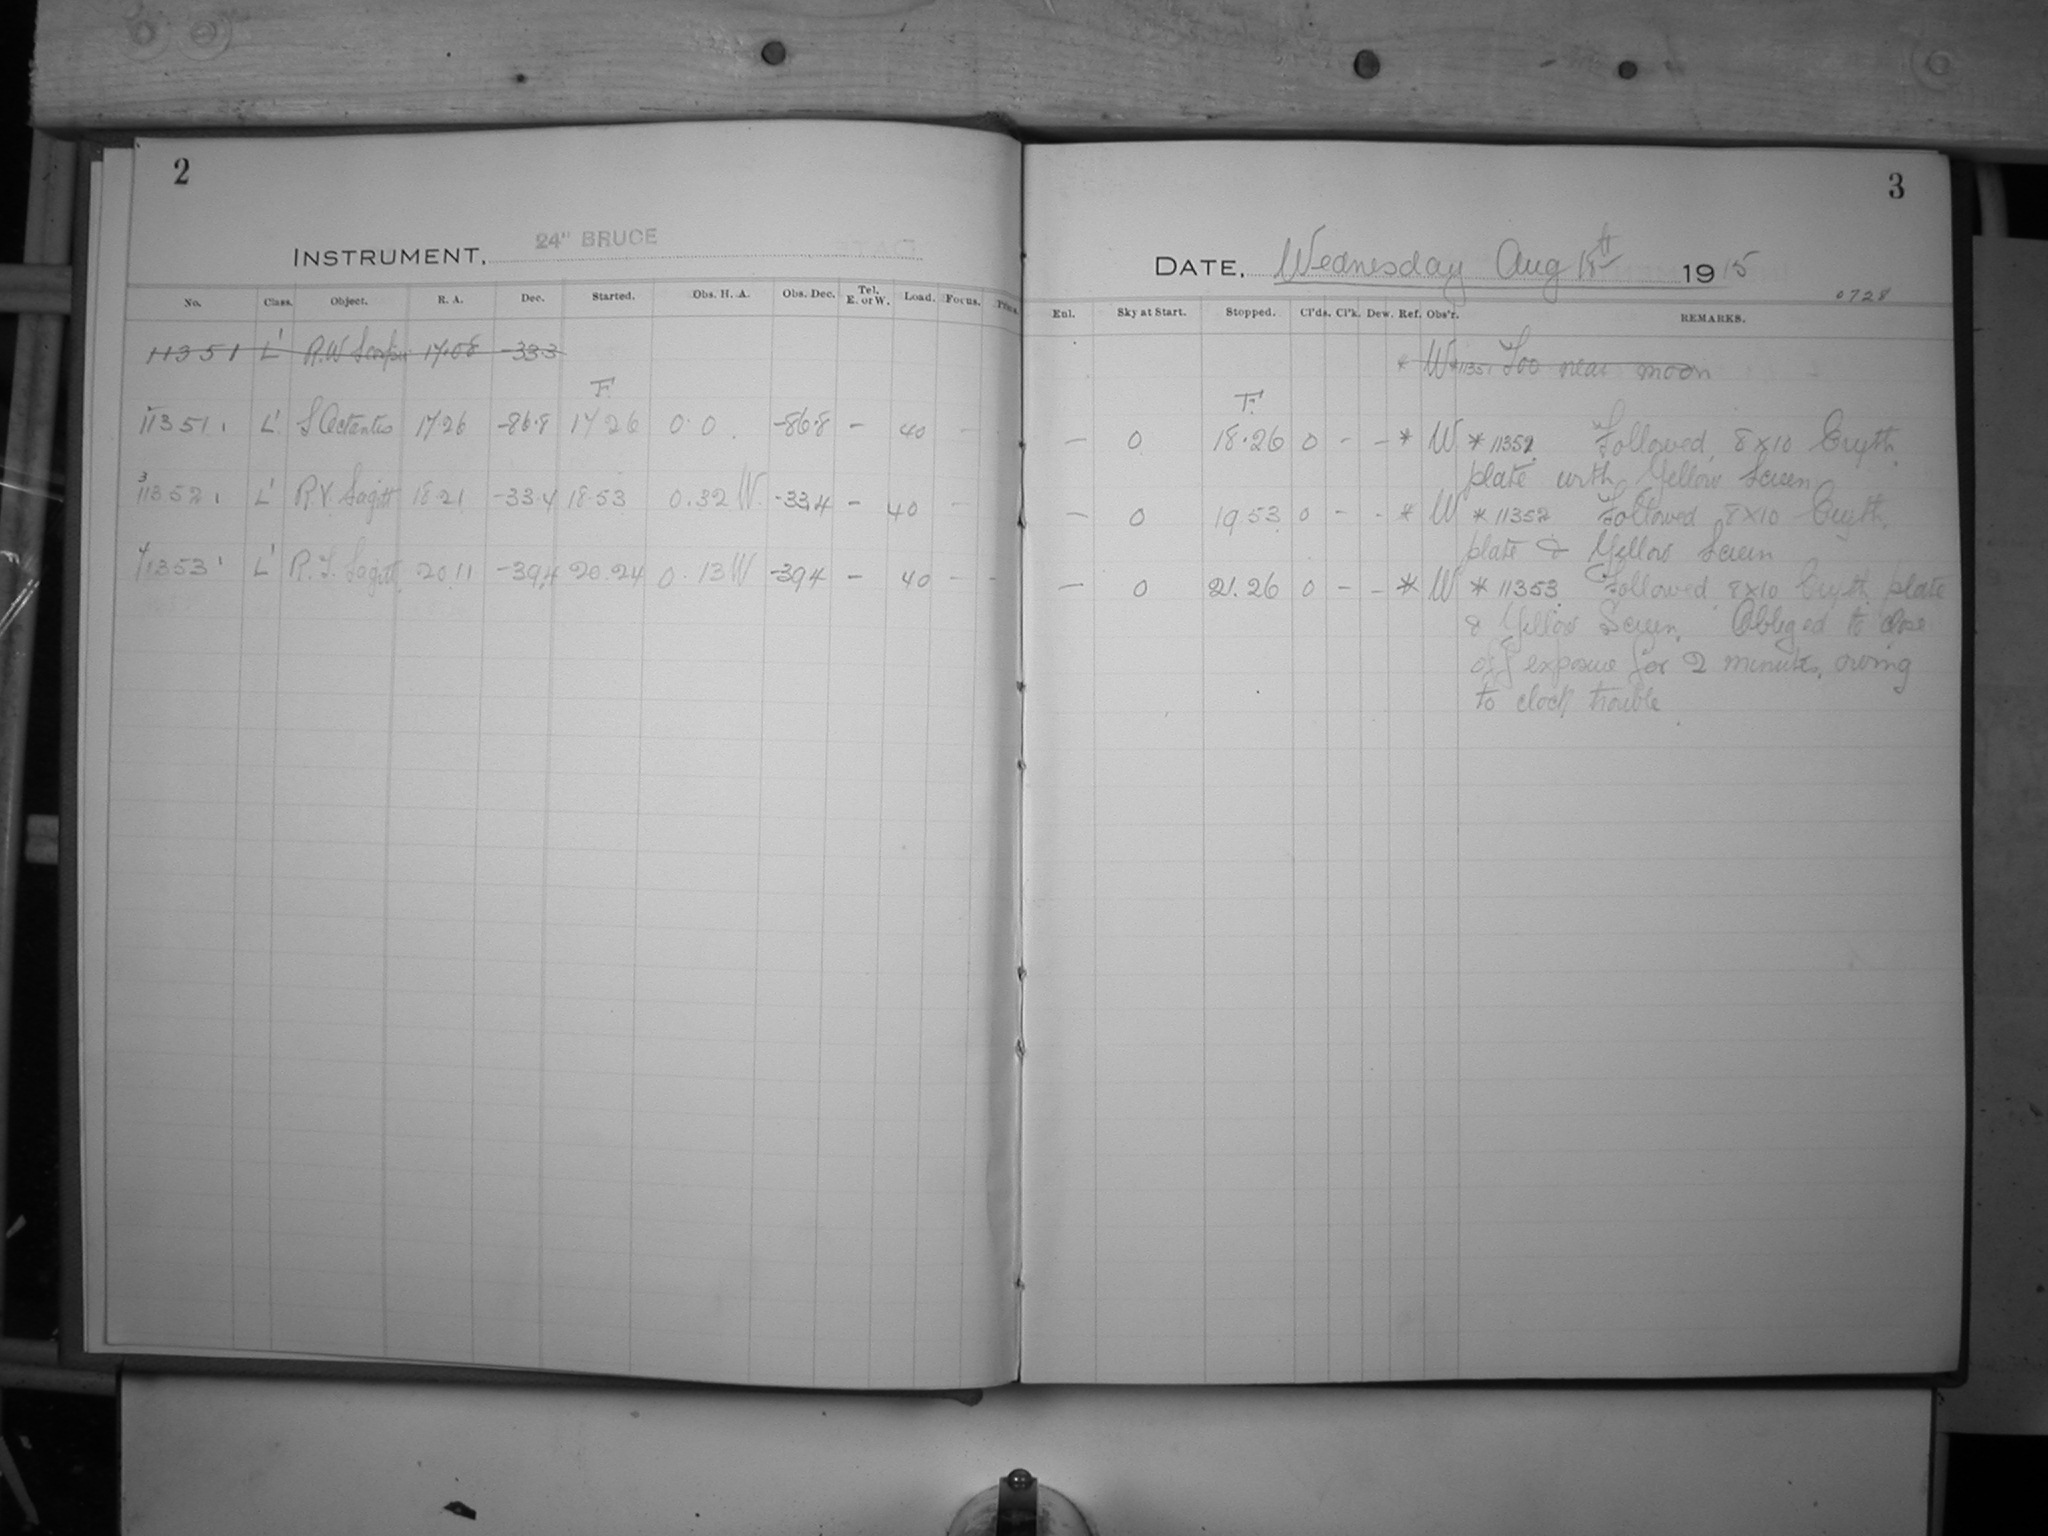 2
INSTRUMENT, 24" BRUCE
No. Class. Object. R. A. Dec. Started. Obs. H. A. Obs. Dec. Tel. E. or W. Load. Focus.
11351 L' R.W Scorpii 17.08 -33.3
F.
11351 L' S Octantis 17.26 -86.8 17 26 0.0. -86.8 - 40 -
3
11352 L' R.V. Sagitt 18.21 -33.4 18.53 0.32 W. -33.4 - 40 -
4
11353 L' Sagitt 20.11 -39.4 20.24 0.13 W -39.4 - 40 - -
3
DATE, Wednesday Aug 18th 1915
0728
Enl. Sky at Start. Stopped. Cl'ds. Cl'k. Dew. Ref. Obs'r. REMARKS.
* W *11351 Too near moon
F.
- 0 18.26 0 - - * W * Followed, 8x10 Cryth.
plate with Yellow Screen
- 0 19.53 0 - - * W * 11352 Followed 8x10 Cryth.
plate & Yellow Screen
- 0 21.26 0 - - * W * 11353 Followed 8x10 Cryth. plate
& Yellow Screen. Obliged to close
off exposure for 2 minutes, owing
to clock trouble.